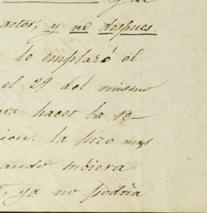 actor, y no despues
lo emplazó el
el 29 del mismo
hacer la re-
cion. la hizo mas
ander subiera
ya no podria